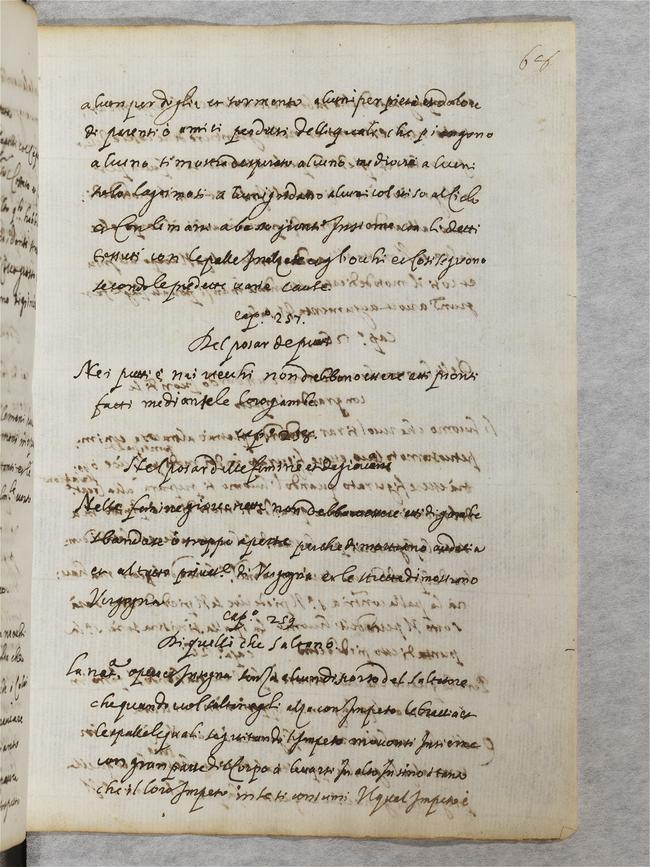 646
alcun per doglia et tormento alcuni per pietà et dolore
di parenti ò amici perduti delli quali che piangono
alcuno si mostra disperato alcuno mediocre alcuni
solo lagrimosi alcuni gridano alcuni col viso al Cielo
et Con le mani a basso giunte Insieme con li detti
tessuti con le spalle Inalzate agli orchi et Così seguono
secondo le predette cause.
Cap.º 257.
Del posar de putti
Nei putti è nei vecchi non debbono essere atti pronti
fatti mediante le loro gambe.
Cap.º 258.
Nel posar delle femine et de giovani
Nelle femine giovenette non debbano essere atti di gambe
sbandate ò troppo aperte perche dimostrano audatia
et al tutto privat.e di Vergogna et le strette dimostrano
Vergogna
Cap.º 259
Di quelli che saltano
La nat.ª opera et Insegna senza alcun discorso del saltatore
che quando vuol saltar egli alza con Impeto le braccia et
le spalle le quali seguitando l'Impeto movonsi Insieme
con gran parte del Corpo à levarsi In alto Insino à tanto
che il loro Impeto in se ti consumi Il qual Impeto è